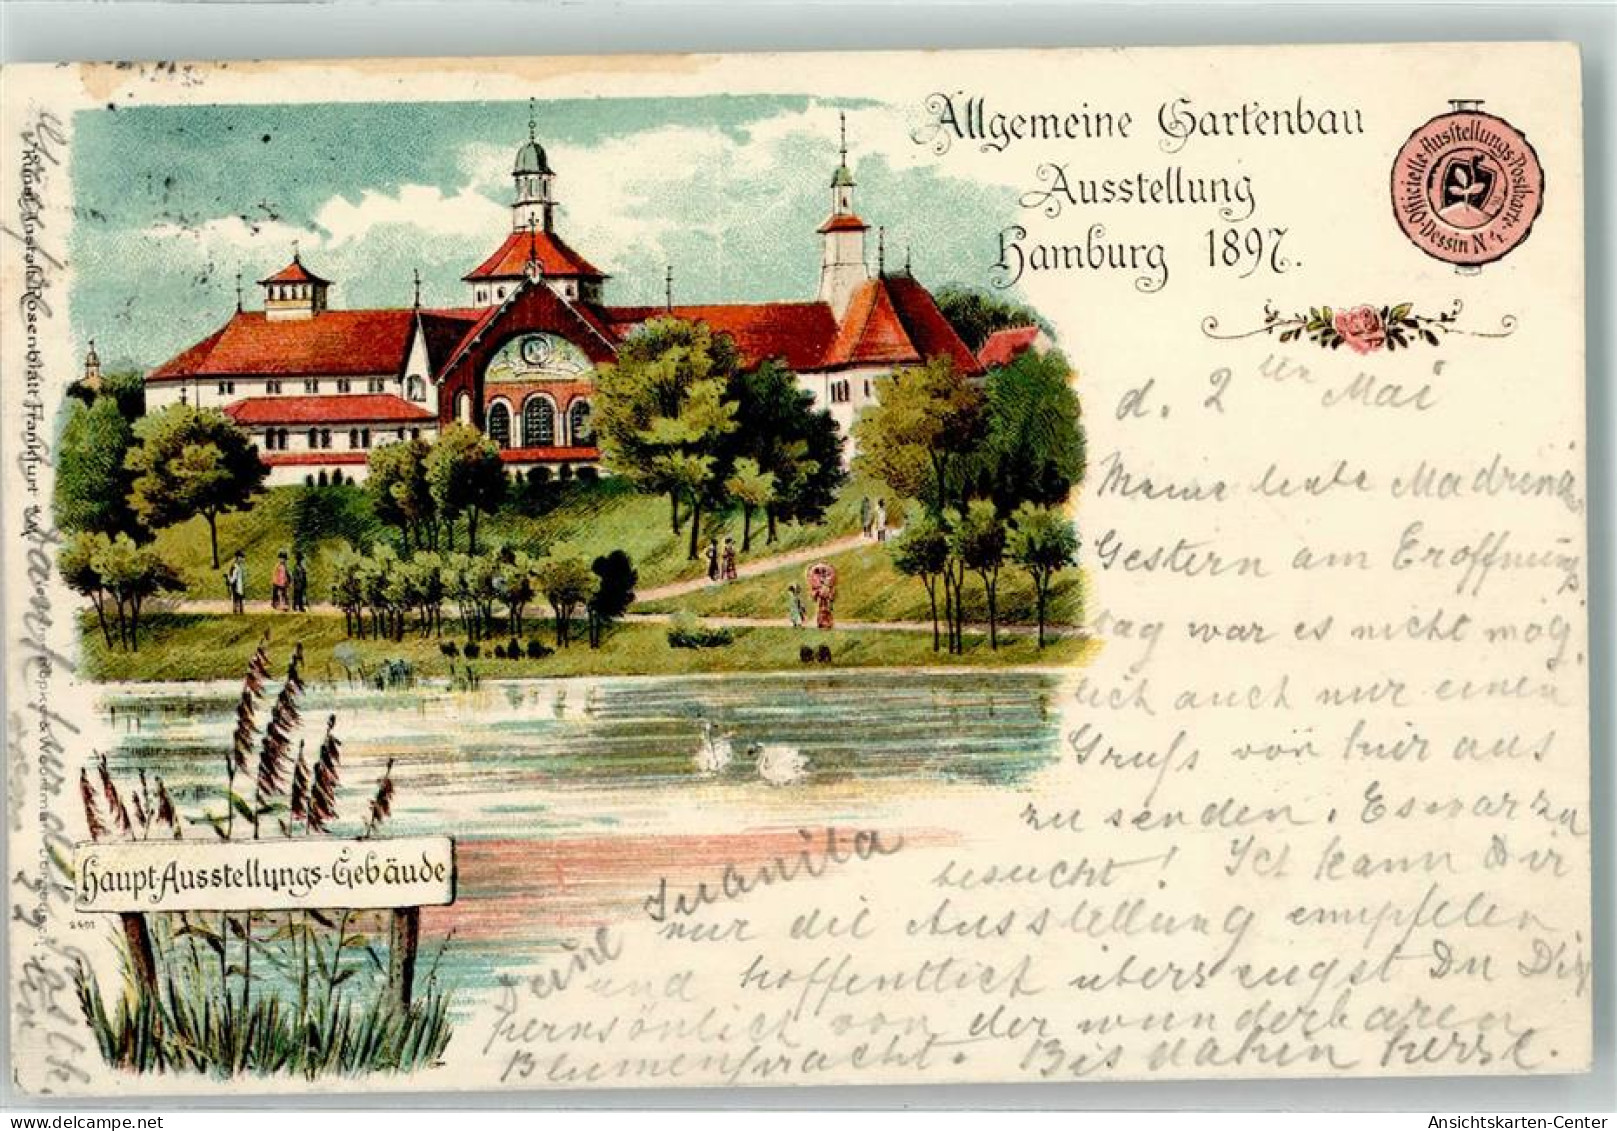 Allgemeine Gartenbau
Ausstellung
Hamburg 1897.
Officielle-Ausstellungs-Postkarte-
Dessin No 1.
d. 2ten Mai
Meine liebe Madrina,
Gestern am Eröffnungs
tag war es nicht mög
lich auch nur einen
Gruß von hier aus
zu senden. Es war zu
besucht! Ich kann Dir
nur die Ausstellung empfelen
und hoffentlich überzeugst Du Dich
persönlich von der wunderbaren
Blumenpracht. Bis dahin herzl.
Deine Juanita
Haupt-Ausstellungs-Gebäude
2401
Kunst-Anstalt Rosenblatt Frankfurt
Ansichtskarten-Center